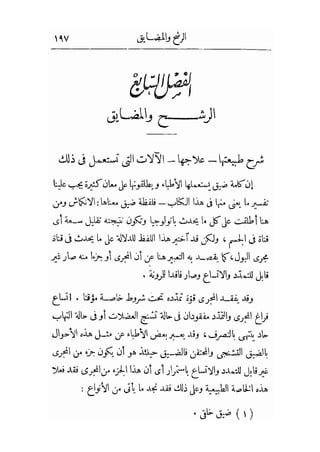 الرشح والمضايق ١٩٧
الفصل السابع
الرشح والمضايق
شرح طبيعتها – علاجها – الآلات التى تستعمل فى ذلك
إن كلمة ضيق يستعملها الأطباء ويطلقونها على معان كثيرة يجب علينا
تفسير ما يعنى منها فى هذا الكتاب – فلفظة ضيق معناها: الانكماش ومن
هنا أطلقت على كل ما يحدث باثولوجيا وتكون نتيجته تقليل سعة أى
قناة فى الجسم، ولكن قد اختير هذا اللفظ للدلالة على ما يحدث فى قناة
مجرى البول، كما يقصد به التعبير هنا عن أن المجرى أو جزءا منه صار غير
قابل للتمدد والاتساع وصار فاقدا للرونة.
وقد يفقد المجرى قوة تمدده تحت شروط خاصة مؤقتا. اتساع
فراغ المجرى والتمدد مفقودان فى حالة تشنج العضلات أو فى حالة التهاب
حاد ينتهى بالتصرف، وقد يعبر بعض الأطباء عن مثل هذه الأحوال
بالضيق التشنجى والمحتقن فالضيق حينئذ هو أن يكون جزء من المجرى
غير قابل للتمدد والاتساع باستمرار أى أن هذا الجزء من المجرى فقد فعلا
هذه الخاصة الطبيعية وعلى ذلك فقد نجد ما يأتى من الأنواع :
( ١ ) ضيق خلقى .